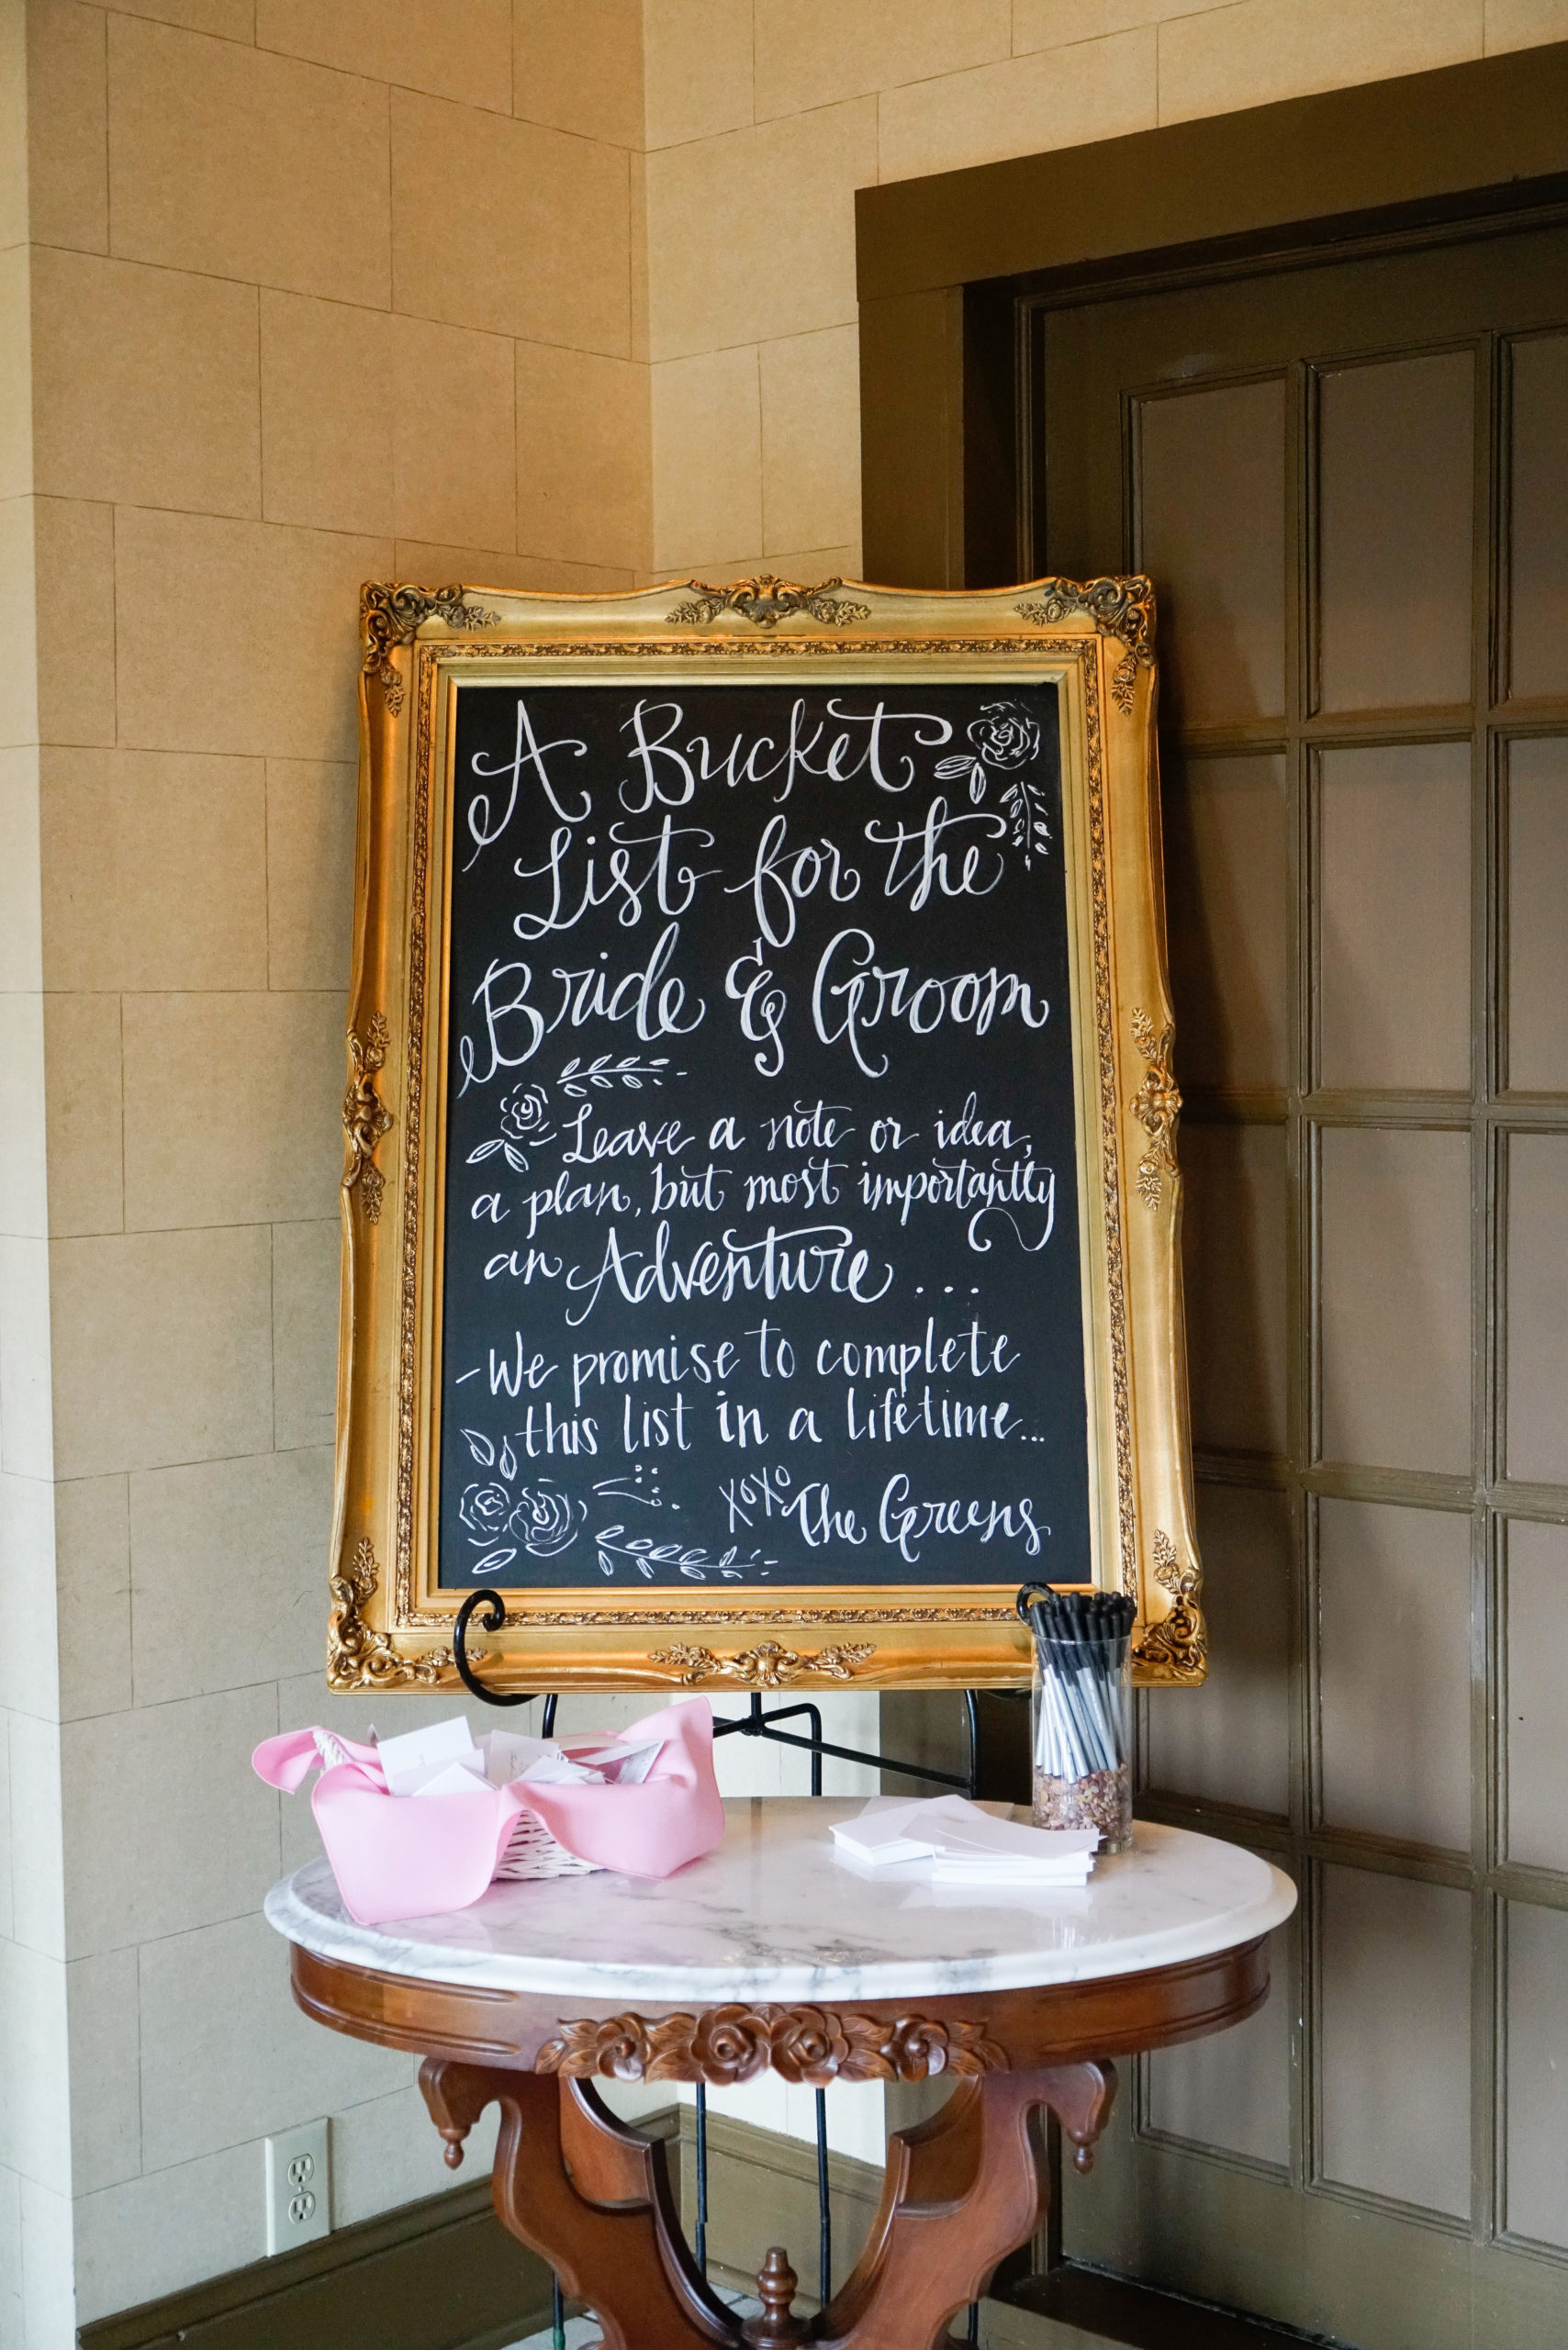 A Bucket
List for the
Bride & Groom
Leave a note or idea,
a plan, but most importantly
an Adventure...
-We promise to complete
this list in a lifetime...
XOXO The Greens